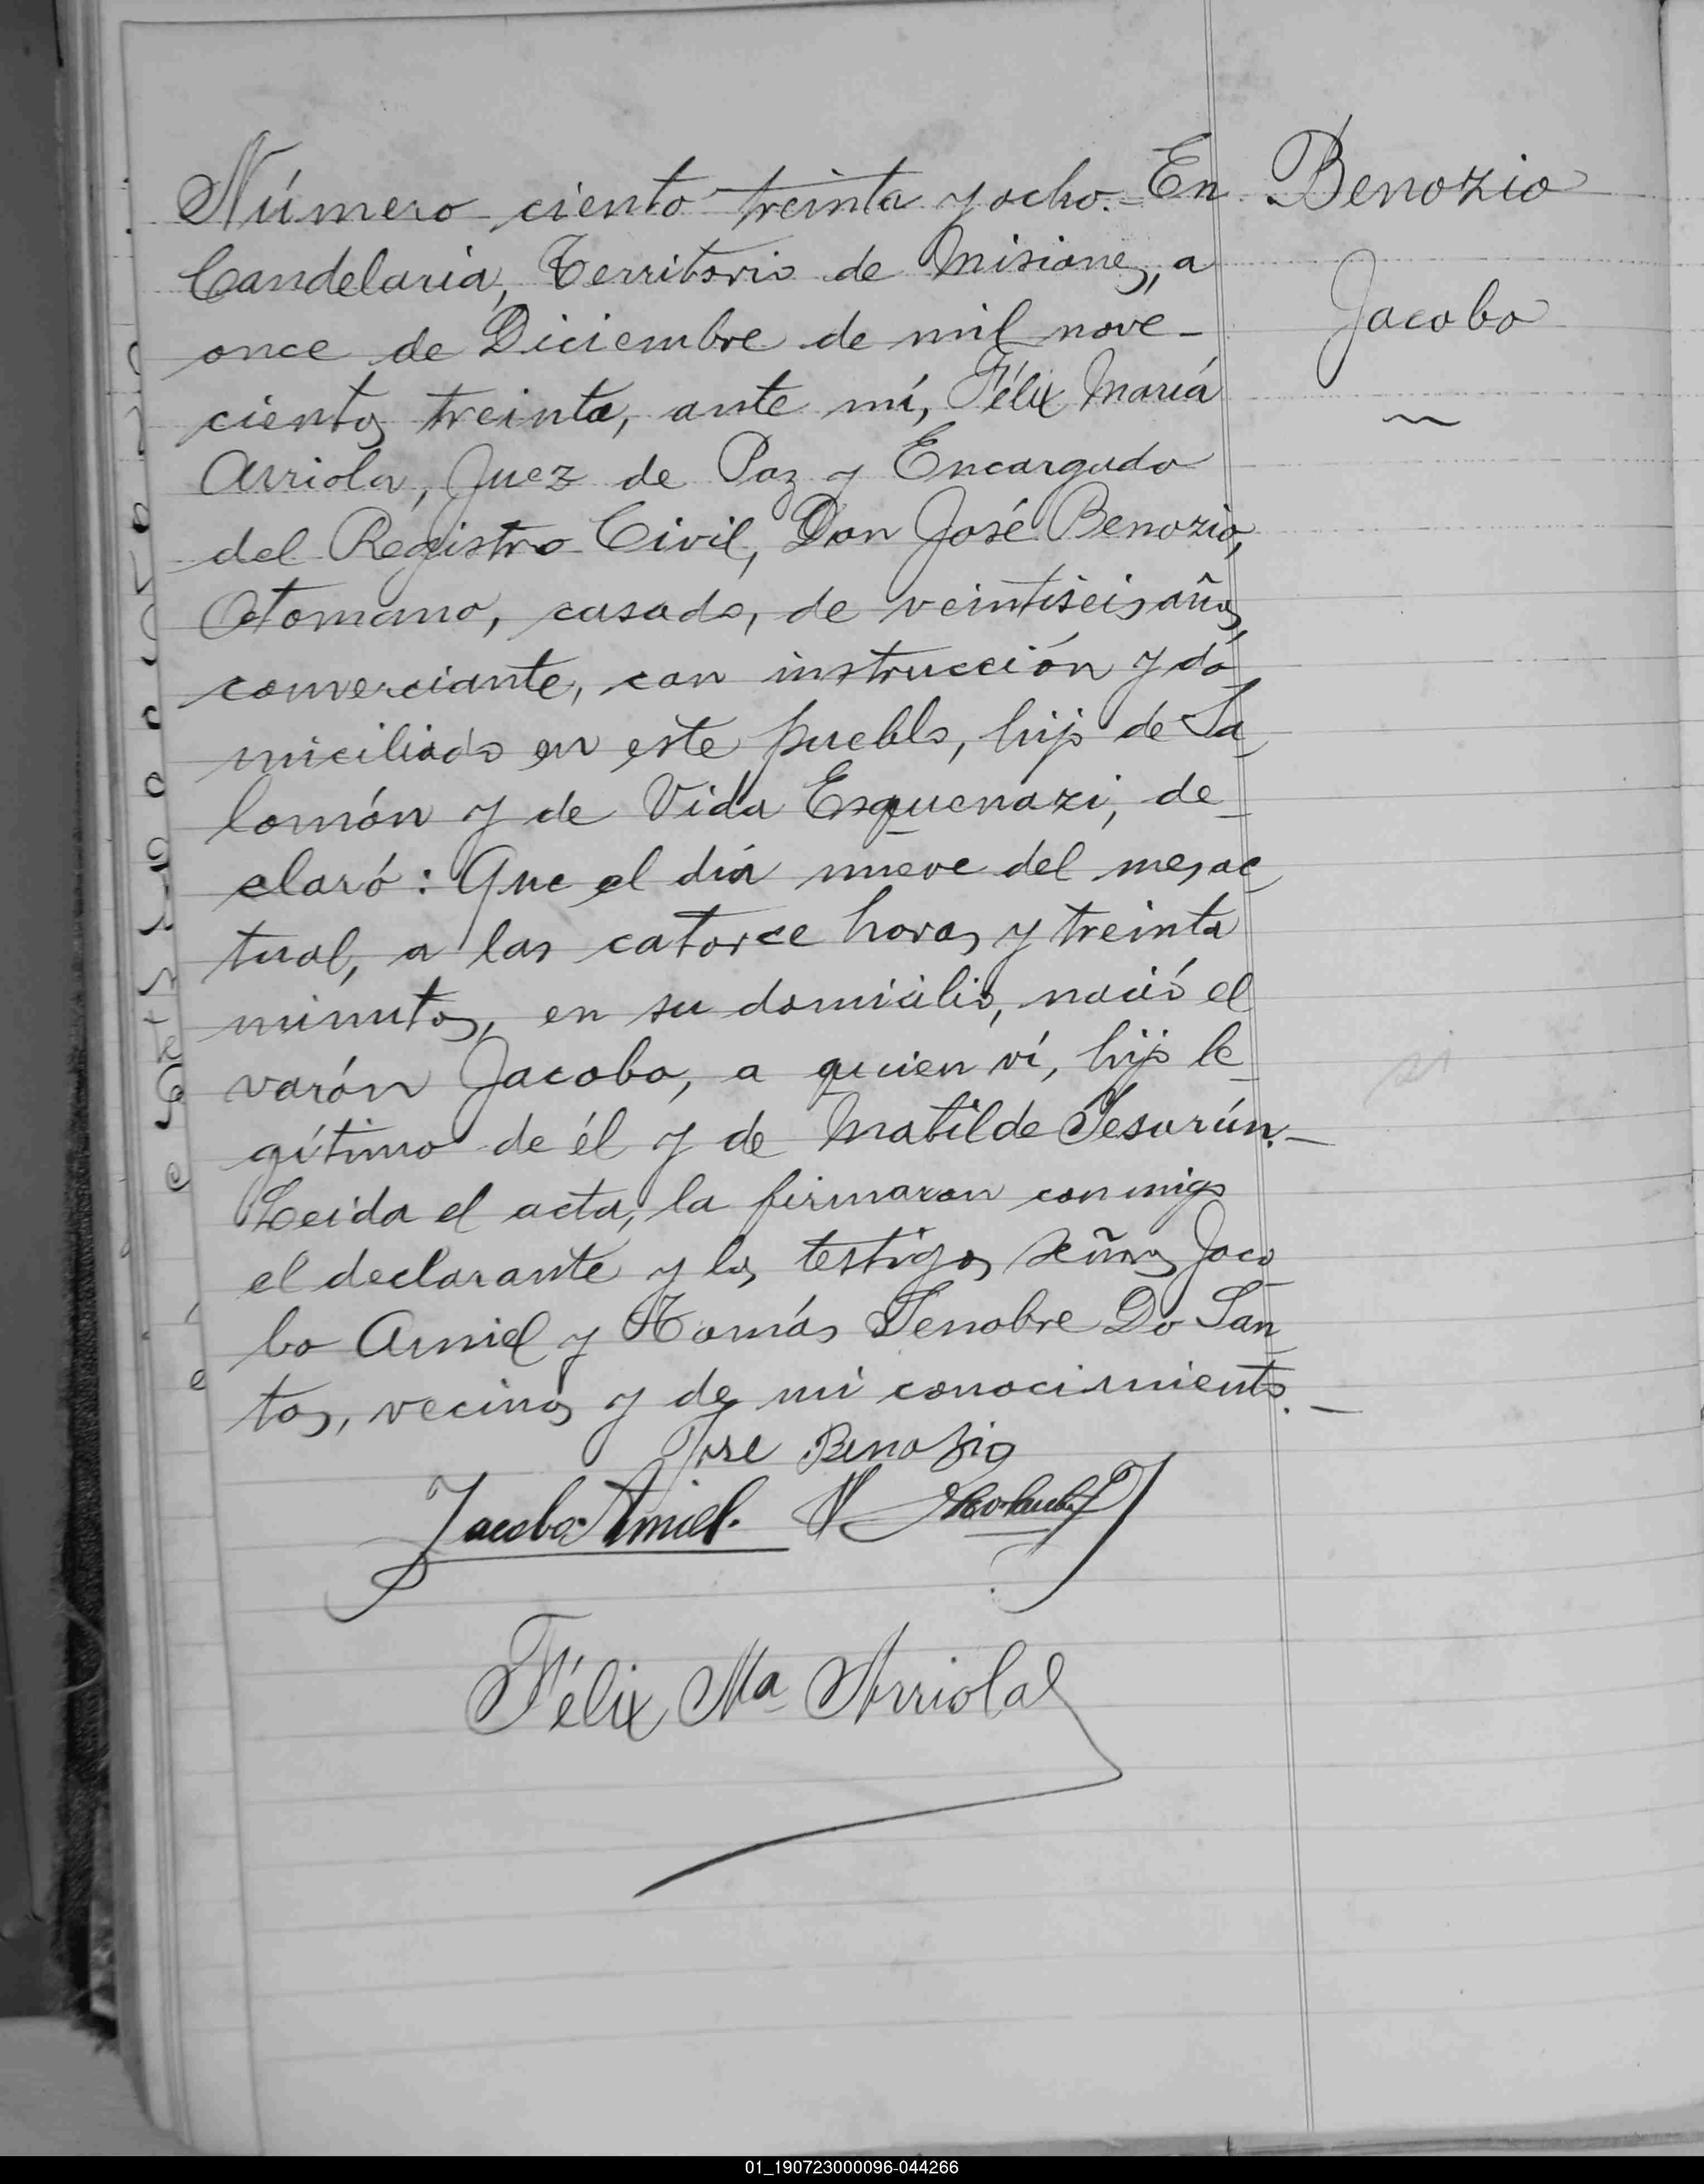 Número ciento treinta y ocho. - En
Candelaria, Territorio de Misiones, a
once de Diciembre de mil nove-
cientos treinta, ante mí, Félix María
Arriola, Juez de Paz y Encargado
del Registro Civil, Don José Benozio,
Otomano, casado, de veintiseis años,
comerciante, con instrucción y do
miciliado en este pueblo, hijo de Sa-
lomón y de Vida Esquenazi, de-
claró: Que el día nueve del mes ac-
tual, a las catorce horas y treinta
minutos, en su domicilio, nació el
varón Jacobo, a quien ví, hijo le-
gítimo de él y de Matilde Jesurún. -
Leida el acta, la firmaron conmigo
el declarante y los testigos señores Jaco
bo Amiel y Tomás Senobre Do San
tos, vecinos y de mi conocimiento. -
Jose Benozio
Jacobo Amiel.
Félix Ma Arriola
Benozio
Jacobo
01_190723000096-044266